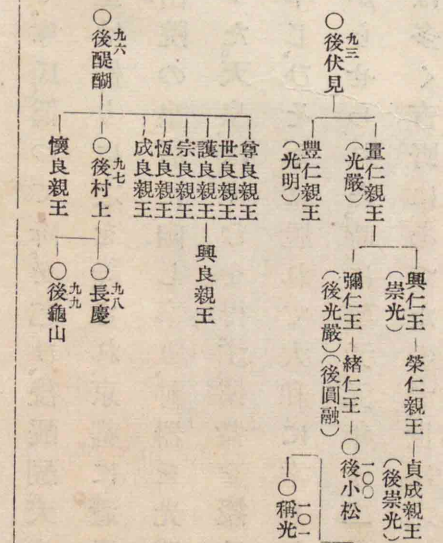 九三
○後伏見
量仁親王
(光嚴)
豐仁親王
(光明)
興仁王
(崇光)
榮仁親王
貞成親王
(後崇光)
彌仁王
(後光嚴)
緒仁王
(後圓融)
一〇〇
○後小松
一〇一
○稱光
九六
○後醍醐
尊良親王
世良親王
護良親王
興良親王
宗良親王
恆良親王
成良親王
九七
○後村上
懷良親王
九八
○長慶
九九
○後龜山